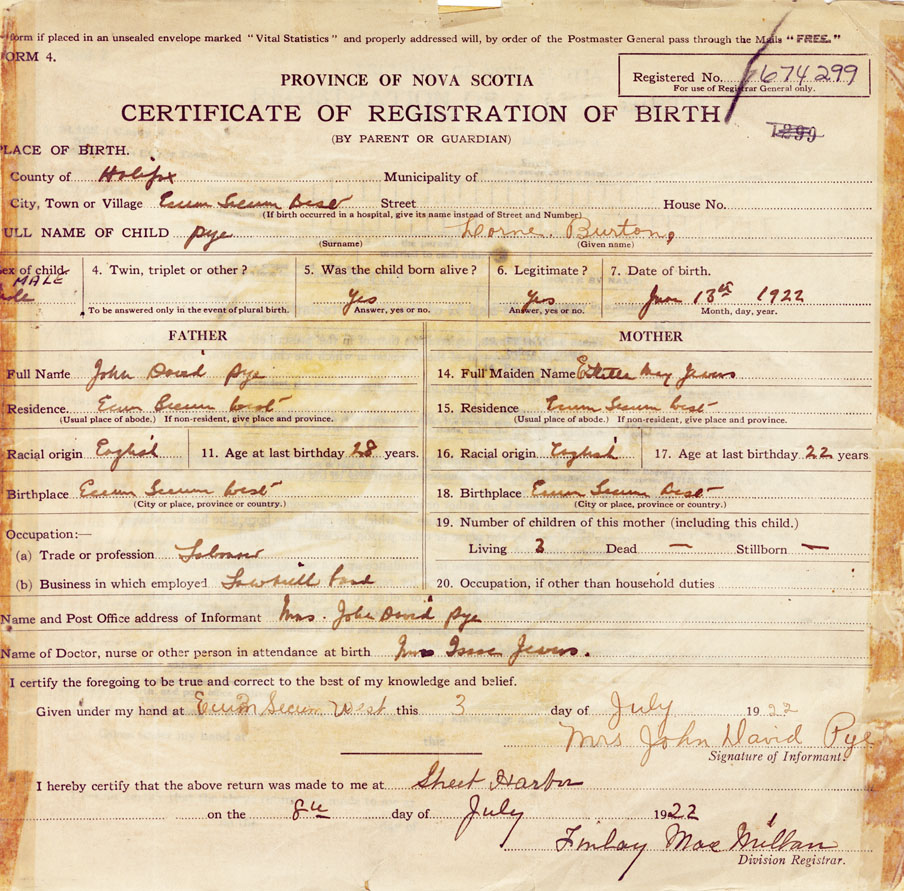 form if placed in an unsealed envelope marked "Vital Statistics" and properly addressed will, by order of the Postmaster General pass through the Mails "FREE."
FORM 4.
PROVINCE OF NOVA SCOTIA
Registered No. 674299
For use of Registrar General only.
CERTIFICATE OF REGISTRATION OF BIRTH
(BY PARENT OR GUARDIAN)
1299
PLACE OF BIRTH.
County of Halifax Municipality of
City, Town or Village Ecum Secum West Street House No.
(If birth occurred in a hospital, give its name instead of Street and Number)
FULL NAME OF CHILD Pye Lorne Burton,
(Surname) (Given name)
Sex of child MALE 4. Twin, triplet or other? 5. Was the child born alive? 6. Legitimate? 7. Date of birth.
Male Yes Yes June 13th 1922
To be answered only in the event of plural birth. Answer, yes or no. Answer, yes or no. Month, day, year.
FATHER MOTHER
Full Name John David Pye 14. Full Maiden Name May Jewers
Residence. Ecum Secum West 15. Residence Ecum Secum West
(Usual place of abode.) If non-resident, give place and province. (Usual place of abode.) If non-resident, give place and province.
Racial origin English 11. Age at last birthday 28 years. 16. Racial origin English 17. Age at last birthday 22 years
Birthplace Ecum Secum West 18. Birthplace Ecum Secum West
(City or place, province or country.) (City or place, province or country.)
19. Number of children of this mother (including this child.)
Occupation:—
(a) Trade or profession Labourer Living 3 Dead — Stillborn —
(b) Business in which employed Sawmill 20. Occupation, if other than household duties
Name and Post Office address of Informant Mrs. John David Pye
Name of Doctor, nurse or other person in attendance at birth Mrs Isaac Jewers.
I certify the foregoing to be true and correct to the best of my knowledge and belief.
Given under my hand at Ecum Secum West this 3 day of July 1922
Mrs John David Pye
Signature of Informant.
I hereby certify that the above return was made to me at Sheet Harbor
on the 8th day of July 1922
Finlay MacMillan
Division Registrar.